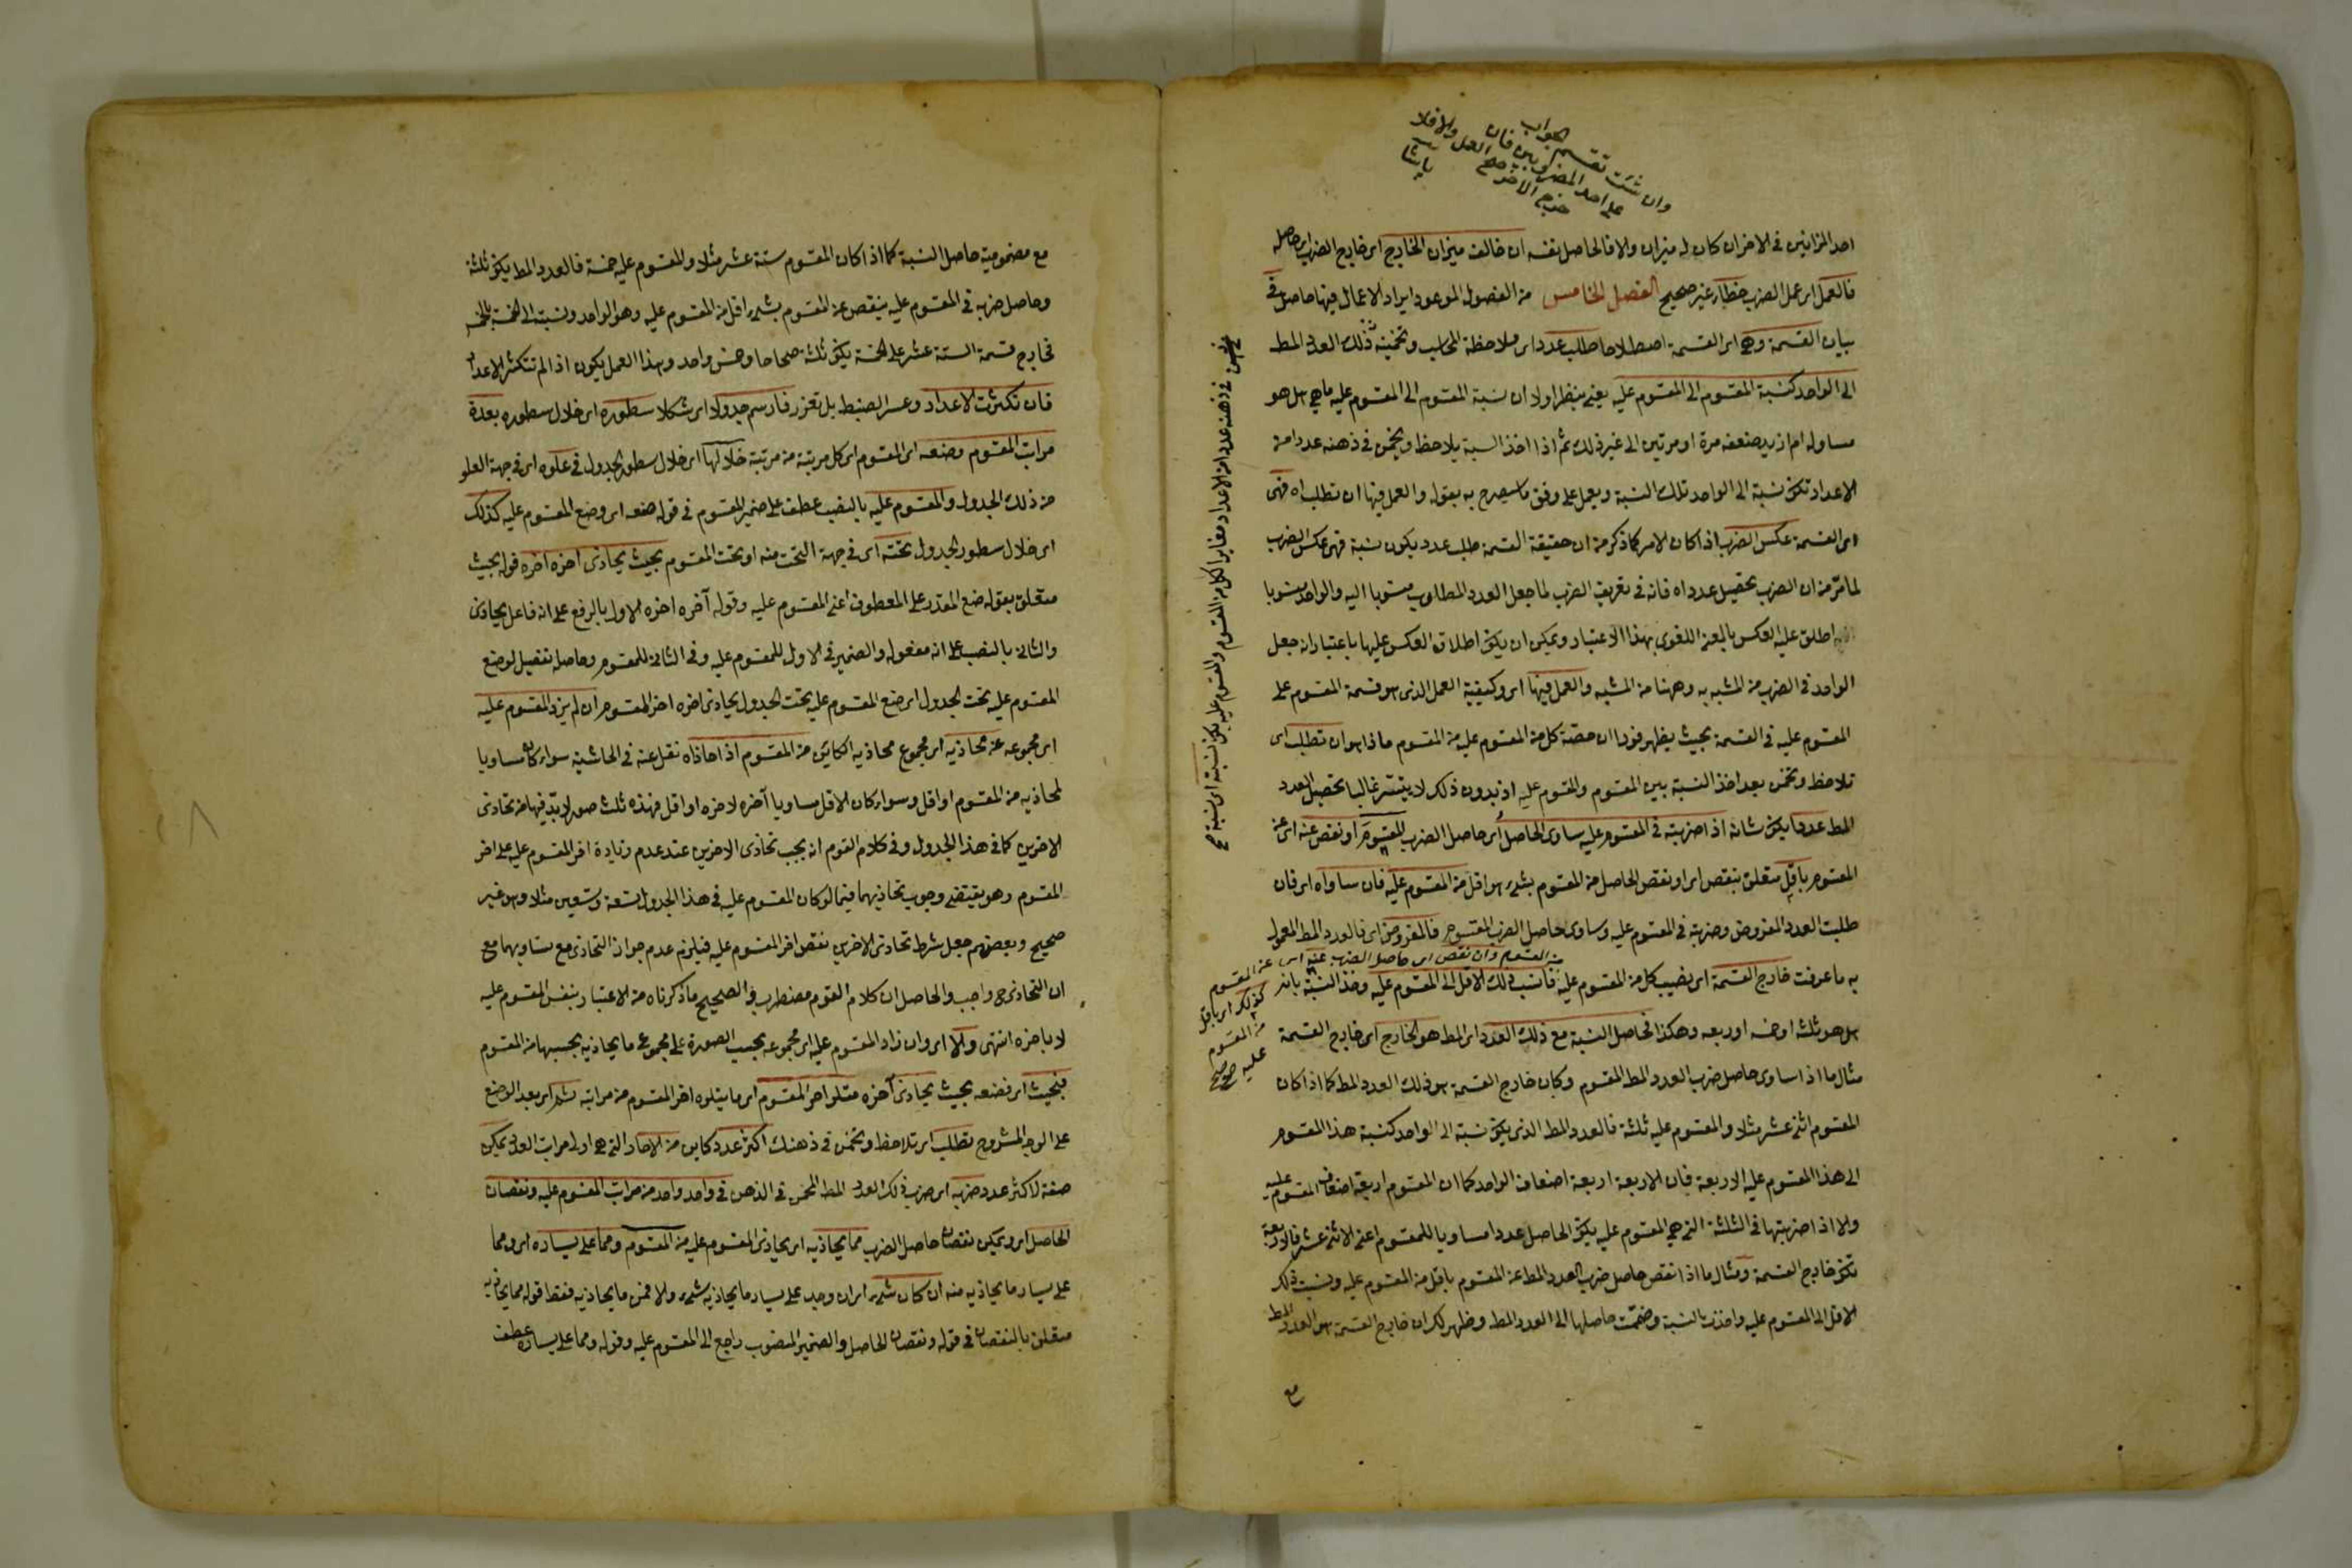 وان شئت تقسم الجواب
على احد المضروبين فان
خرج الاخر صح العمل والا فلا
احد الميزانين في الاخر ان كان له ميزان والا فالحاصل نفسه ان خالف ميزان الخارج اى خارج الضرب اى حاصله
فالعمل اى عمل الضرب خطا غير صحيح الفصل الخامس من الفصول الموعود ايراد الاعمال فيها حاصل في
بيان القسمة وهى اى القسمة اصطلاحا طلب عدد اى ملاحظة المحاسب وتخمينه ذلك العدد المط
الى الواحد كنسبة المقسوم الى المقسوم عليه يعنى ينظر اولا ان نسبة المقسوم الى المقسوم عليه ما هى هل هو
مساو له ام ازيد بضعفه مرة او مرتين الى غير ذلك ثم اذا اخذ النسبة يلاحظ ويخمن في ذهنه عددا من
الاعداد تكون نسبة الى الواحد تلك النسبة ويعمل على وفق ما سيصرح به بقوله والعمل فيها ان تطلب اه فهى
اى القسمة عكس الضرب اذا كان الامر كما ذكر من ان حقيقة القسمة طلب عدد يكون نسبة فهى عكس الضرب
لما مر من ان الضرب تحصيل عدد اه فانه في تعريف الضرب لما جعل العدد المطلوب منسوبا اليه والواحد منسوبا
اطلق عليه العكس بالمعنى اللغوى بهذا الاعتبار ويمكن ان يكون اطلاق العكس عليها باعتبار انه جعل
الواحد في الضرب من المشبه به وههنا من المشبه والعمل فيها اى وكيفية العمل الذى هو قسمة المقسوم على
المقسوم عليه في القسمة بحيث يظهر فورا ان حصة كل من المقسوم عليه من المقسوم ماذا هو ان تطلب اى
تلاحظ وتخمن بعد اخذ النسبة بين المقسوم والمقسوم عليه اذ بدون ذلك لا يتيسر غالبا تحصيل العدد
المط عددا يكون شانه اذا ضربته في المقسوم عليه ساوى الحاصل اى حاصل الضرب المقسوم او نقص عنه اى عن
المقسوم باقل متعلق بنقص اى او نقص الحاصل من المقسوم بشئ هو اقل من المقسوم عليه فان ساواه اى فان
طلبت العدد المفروض وضربته في المقسوم عليه وساوى حاصل الضرب المقسوم فالمفروض اى فالعدد المط المعمول
من المقسوم وان نقص اى حاصل الضرب عنه اى عن المقسوم
كذلك اى باقل
من المقسوم
عليه صح
به ما عرفت خارج القسمة اى نصيب كل من المقسوم عليه فانسب ذلك الاقل الى المقسوم عليه وخذ النسبة بانه
هل هو ثلثه او خمسه او ربعه وهكذا فحاصل النسبة مع ذلك العدد اى المط هو الخارج اى خارج القسمة
مثال ما اذا ساوى حاصل ضرب العدد المط المقسوم وكان خارج القسمة هو ذلك العدد المط كما اذا كان
المقسوم اثنى عشر مثلا والمقسوم عليه ثلثة فالعدد المط الذى يكون نسبته الى الواحد كنسبة هذا المقسوم
الى هذا المقسوم عليه الاربعة فان الاربعة اربعة اضعاف الواحد كما ان المقسوم اربعة اضعاف المقسوم عليه
ولا اذا ضربتها في الثلثة التى هى المقسوم عليه يكون الحاصل عددا مساويا للمقسوم اعنى الاثنى عشر فالاربعة
تكون خارج القسمة ومثال ما اذا نقص حاصل ضرب العدد المط عن المقسوم باقل من المقسوم عليه ونسبت ذلك
الاقل الى المقسوم عليه واخذت بالنسبة وضممت حاصلها الى العدد المط وظهر لك ان خارج القسمة هو العدد المط
مع
في ذهنه عددا من الاعداد مغايرا لكل من المقسوم والمقسوم عليه يكون نسبته اى نسبة صح
مع مضمومية حاصل النسبة كما اذا كان المقسوم ستة عشر مثلا والمقسوم عليه خمسة فالعدد المط يكون ثلثة
وحاصل ضربه في المقسوم عليه ينقص عن المقسوم بشئ اقل من المقسوم عليه وهو الواحد ونسبته الى الخمسة بالخمس
فخارج قسمة الستة عشر على الخمسة يكون ثلثة صحاحا وخمس واحد وهذا العمل يكون اذا لم تتكثر الاعداد
فان تكثرت الاعداد وعسر الضبط بل تعزر فارسم جدولا اى شكلا سطوره اى خلال سطوره بعدة
مراتب المقسوم وضعه اى المقسوم اى كل مرتبة من مرتبة خلالها اى خلال سطور الجدول في علوه اى في جهة العلو
من ذلك الجدول والمقسوم عليه بالنصب عطف على ضمير المقسوم في قوله ضعه اى وضع المقسوم عليه كذلك
اى خلال سطور الجدول تحته اى في جهة التحت منه او تحت المقسوم بحيث يحاذى اخره اخره قوله بحيث
متعلق بقوله ضع المقدر على المعطوف اعنى المقسوم عليه وقوله آخره اخره الاول بالرفع على انه فاعل يحاذى
والثانى بالنصب على انه مفعوله والضمير في الاول للمقسوم عليه وفى الثانى للمقسوم وحاصله تفصيل لوضع
المقسوم عليه تحت الجدول اى ضع المقسوم عليه تحت الجدول يحاذى اخره اخر المقسوم ان لم يزد المقسوم عليه
اى مجموعه عن محاذيه اى مجموع محاذيه الكاين من المقسوم اذا حاذاه نقل عنه في الحاشية سواء كان مساويا
لمحاذيه من المقسوم او اقل وسواء كان الاقل مساويا آخره لاخره او اقل فهذه ثلث صور لا بد فيها من تحاذى
الاخرين كما في هذا الجدول وفى كلام القوم انه يجب تحاذى الاخرين عند عدم زيادة اخر المقسوم عليه على اخر
المقسوم وهو يقتضى وجوب تحاذيهما فيما لو كان المقسوم عليه في هذا الجدول تسعة وتسعين مثلا وهو غير
صحيح وبعضهم جعل شرط تحاذى الاخرين نقص اخر المقسوم عليه فيلزم عدم جواز التحاذى مع تساويهما مع
ان التحاذى ح واجب والحاصل ان كلام القوم مضطرب والصحيح ما ذكرناه من الاعتبار بنفس المقسوم عليه
لا باخره انتهى والا اى وان زاد المقسوم عليه اى مجموعه بحسب الصورة على مجموع ما يحاذيه بحسبها من المقسوم
فبحيث اى فضعه بحيث يحاذى آخره متلو اخر المقسوم اى ما يتلوه اخر المقسوم من مراتبه ثم اى بعد الوضع
على الوجه المشروح تطلب اى تلاحظ وتخمن في ذهنك اكثر عدد كاين من الاحاد التى هى اولى مراتب العدد يمكن
صفة لاكثر عدد ضربه اى ضرب ذلك العدد المط المخمن في الذهن في واحد واحد من مراتب المقسوم عليه ونقصان
الحاصل اى ويمكن نقصان حاصل الضرب مما يحاذيه اى يحاذى المقسوم عليه من المقسوم ومما على يساره اى ومما
على يسار ما يحاذيه منه ان كان شئ اى ان وجد على يسار ما يحاذيه شئ والا فمن ما يحاذيه فقط قوله مما يحاذيه
متعلق بالنقصان في قوله ونقصان الحاصل والضمير المنصوب راجع الى المقسوم عليه وقوله ومما على يساره عطف